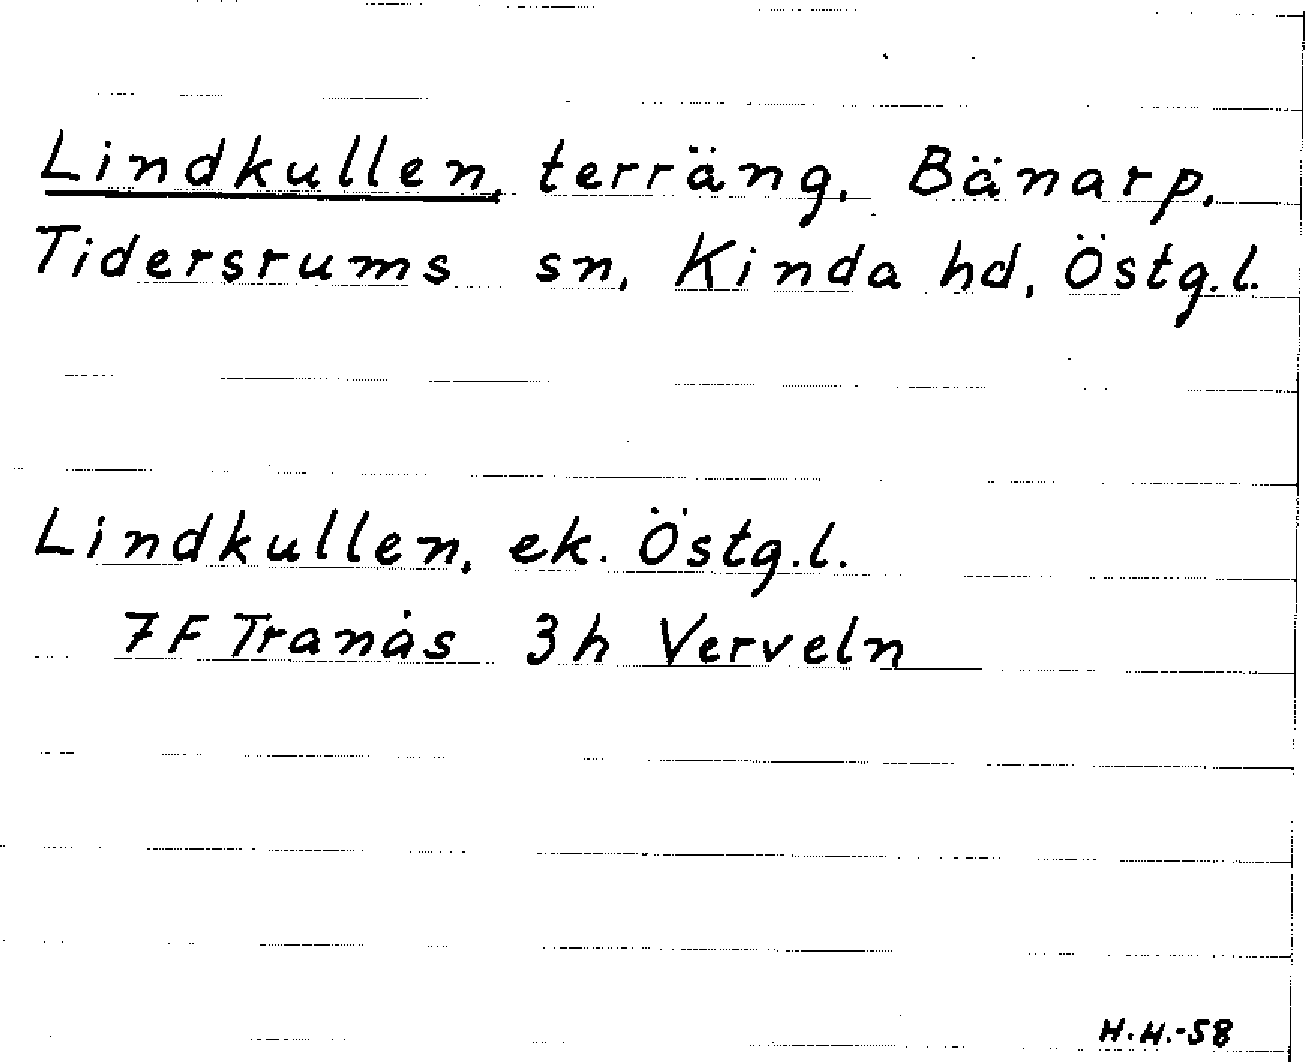 Lindkullen, terräng, Bänarp,
Tidersrums sn, Kinda hd, Östg.l.
Lindkullen, ek. Östg.l.
7F Tranås 3h Verveln
H.H.-58